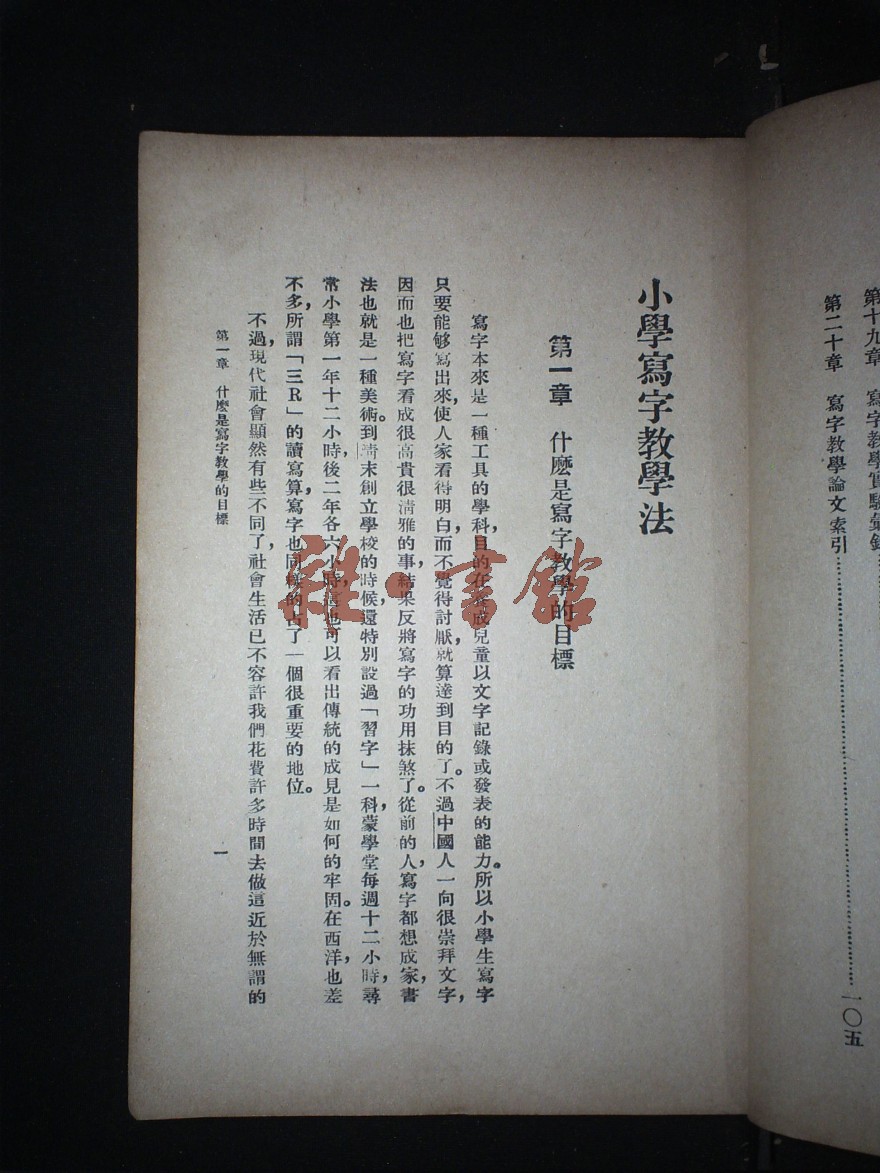 第十九章　寫字教學實驗彙錄
第二十章　寫字教學論文索引……一〇五
小學寫字教學法
第一章　什麽是寫字教學的目標
寫字本來是一種工具的學科，目的在養成兒童以文字記錄或發表的能力。所以小學生寫字
只要能够寫出來，使人家看得明白，而不覺得討厭，就算達到目的了。不過中國人一向很崇拜文字，
因而也把寫字看成很高貴很清雅的事，結果反將寫字的功用抹煞了。從前的人，寫字都想成家，書
法也就是一種美術。到清末創立學校的時候，還特別設過「習字」一科，蒙學堂每週十二小時，尋
常小學第一年十二小時，後二年各六小時，這也可以看出傳統的成見是如何的牢固。在西洋，也差
不多，所謂「三R」的讀寫算，寫字也同樣的占了一個很重要的地位。
不過，現代社會顯然有些不同了，社會生活已不容許我們花費許多時間去做這近於無謂的
第一章　什麽是寫字教學的目標
一
雜·書館